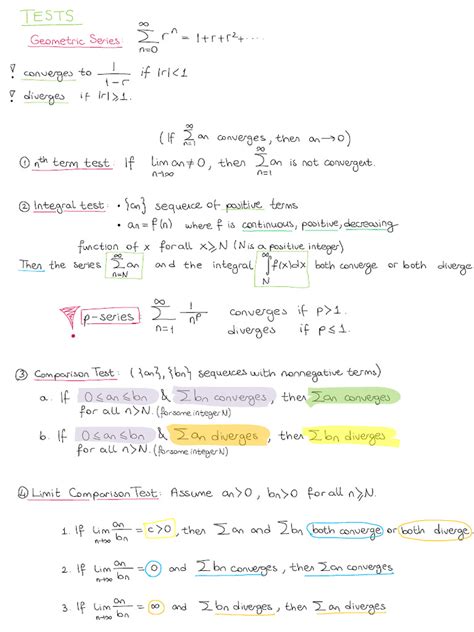 TESTS
Geometric Series: ∞ Σ n=0 rⁿ = 1+r+r²+....
! converges to 1/(1-r) if |r|<1
! diverges if |r|≥1.
(If ∞ Σ n=1 an converges, then an→0)
① nth term test: If lim n→∞ an≠0, then ∞ Σ n=1 an is not convergent.
② Integral test: • {an} sequence of positive terms
• an=f(n) where f is continuous, positive, decreasing
function of x for all x≥N (N is a positive integer)
Then the series ∞ Σ n=N an and the integral ∞ ∫ N f(x)dx both converge or both diverge
p-series ∞ Σ n=1 1/nᵖ converges if p>1.
diverges if p≤1.
③ Comparison Test: ({an}, {bn} sequences with nonnegative terms)
a. If 0≤an≤bn & Σbn converges, then Σan converges
for all n>N. (for some integer N)
b. If 0≤an≤bn & Σan diverges, then Σbn diverges
for all n>N. (for some integer N)
④ Limit Comparison Test: Assume an>0, bn>0 for all n≥N.
1. If lim n→∞ an/bn = c>0, then Σan and Σbn both converge or both diverge.
2. If lim n→∞ an/bn = 0 and Σbn converges, then Σan converges
3. If lim n→∞ an/bn = ∞ and Σbn diverges, then Σan diverges